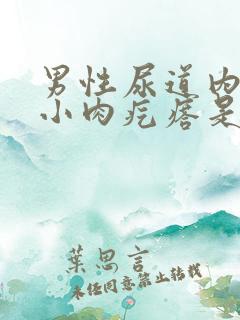 男性尿道内
小肉疙瘩是
葉思言
未经同意禁止转载